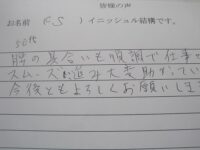 皆様の声
お名前 (F S) イニッシャル結構です。
50代
腰の具合いも順調で仕事が
スムーズに進み大変助かってい
今後ともよろしくお願いしま